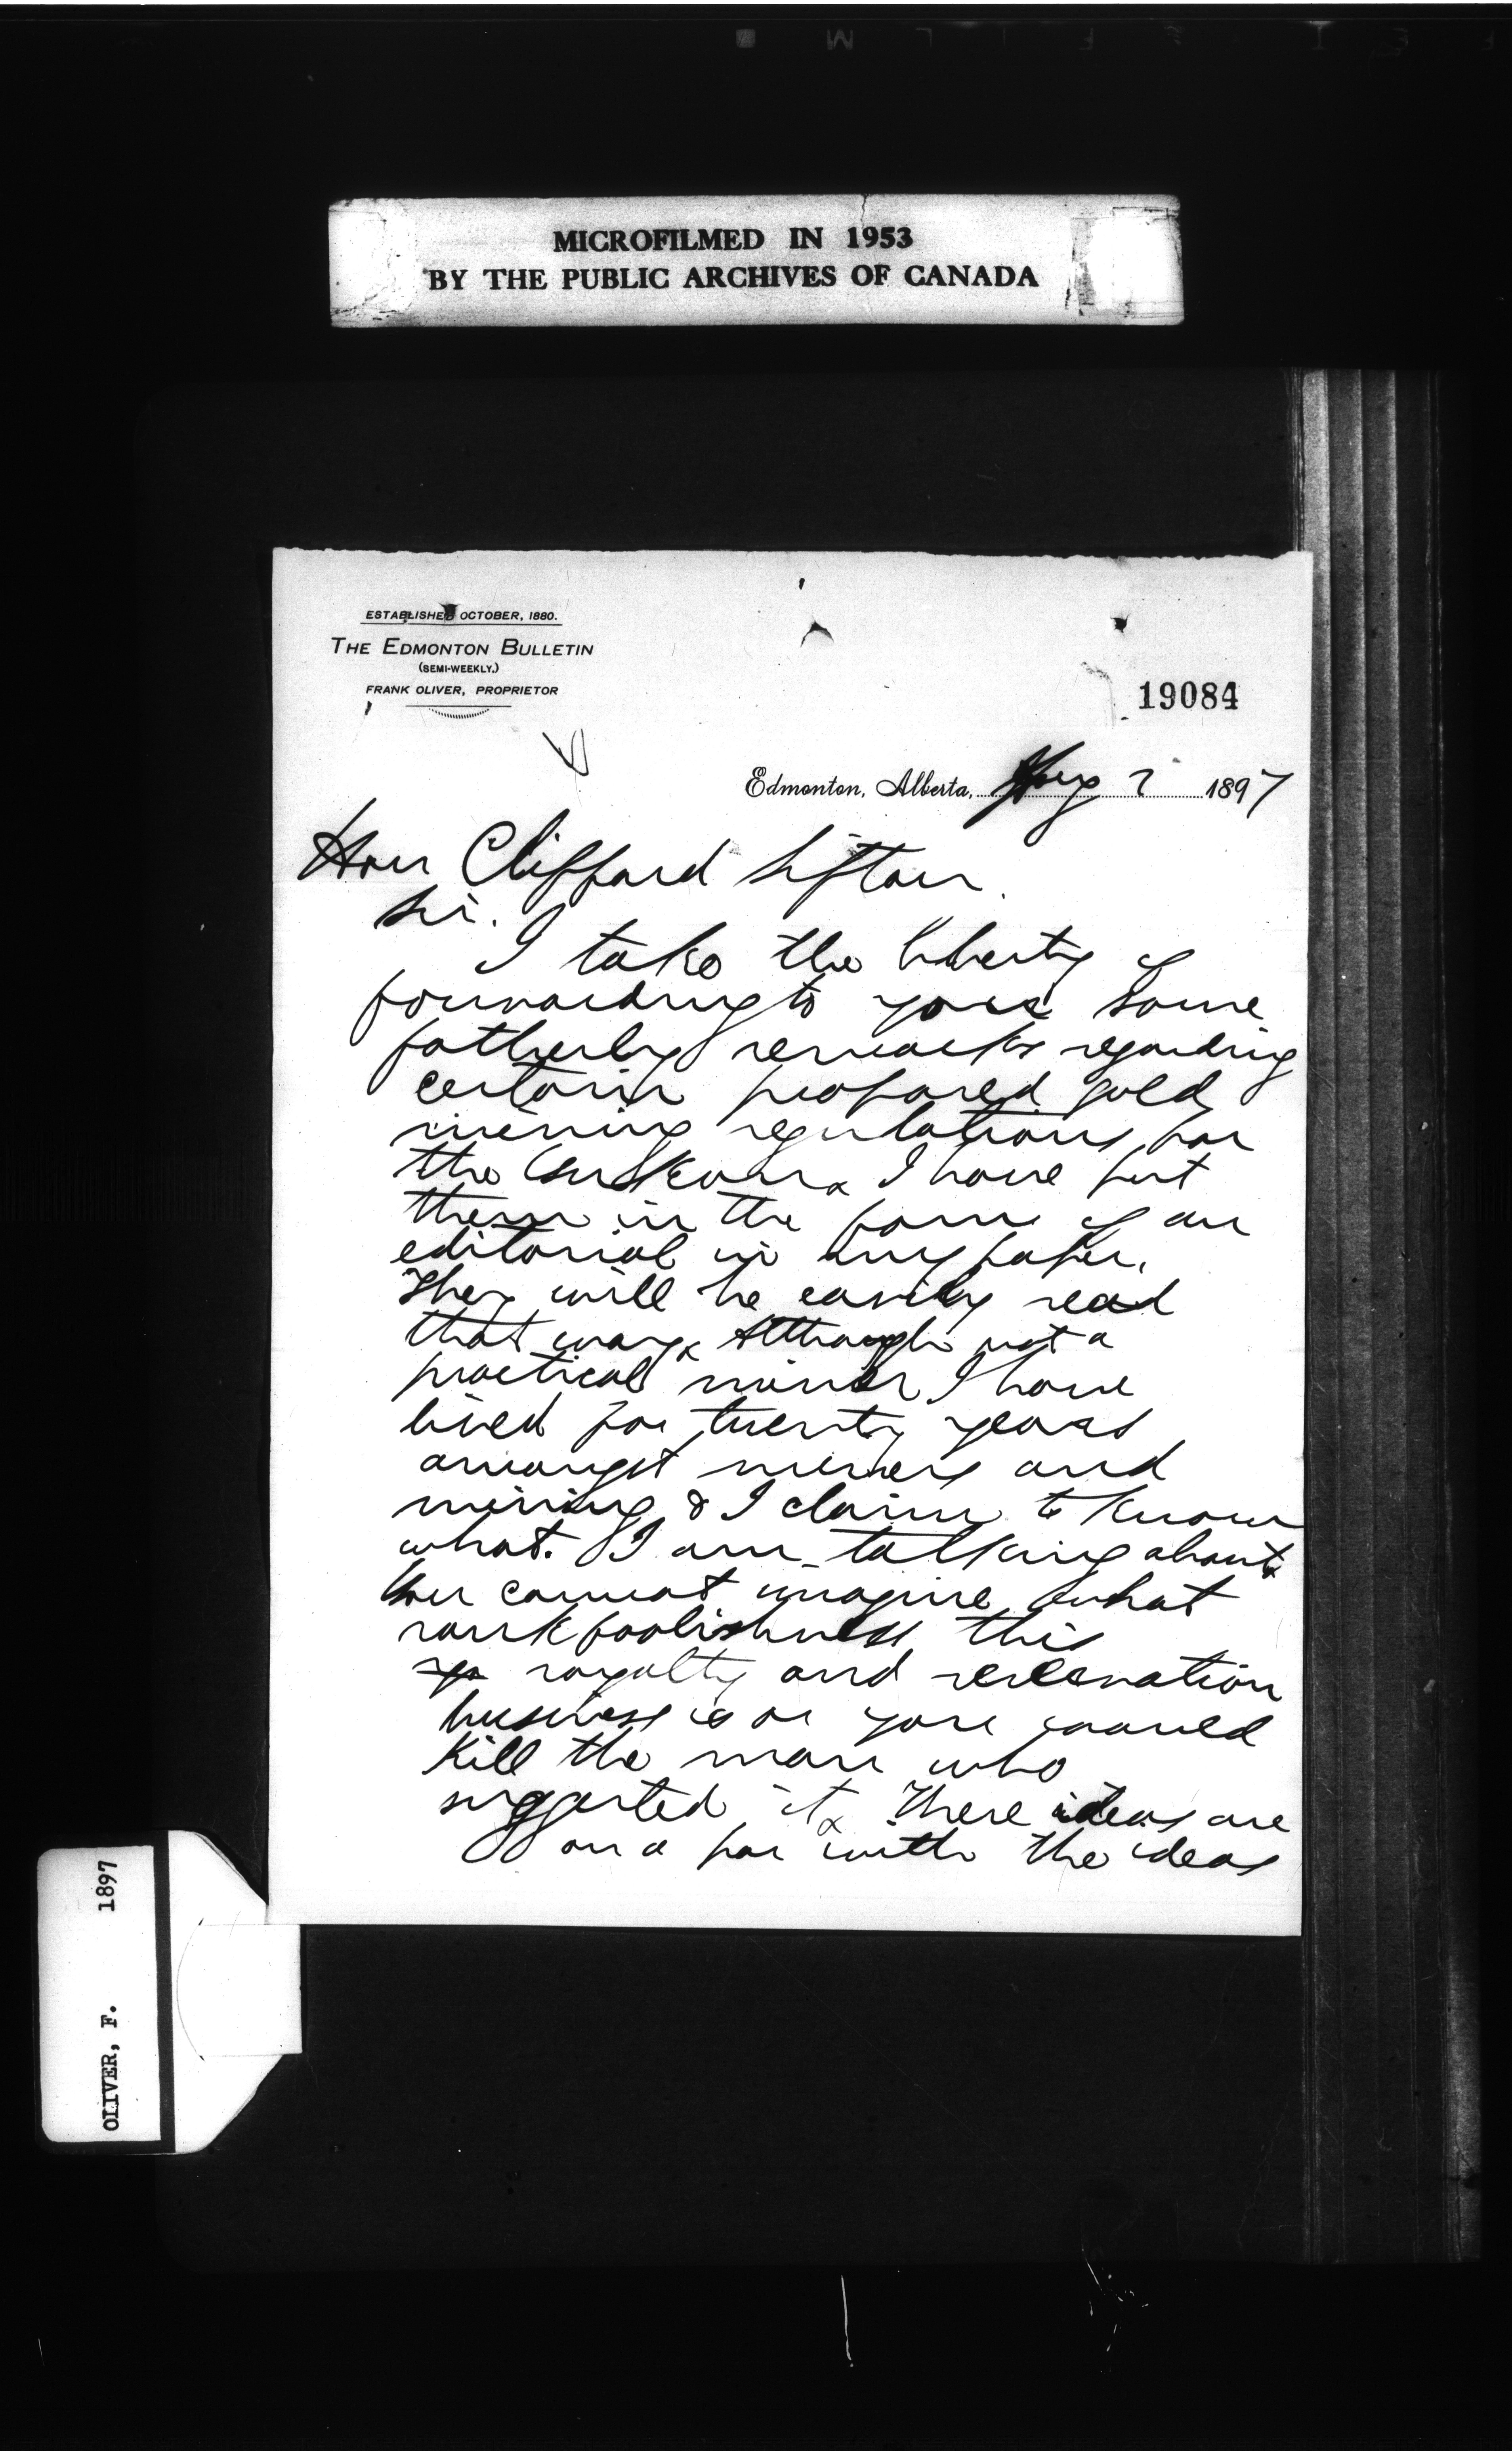 MICROFILMED IN 1953
BY THE PUBLIC ARCHIVES OF CANADA
ESTABLISHED OCTOBER, 1880.
THE EDMONTON BULLETIN
(SEMI-WEEKLY.)
FRANK OLIVER, PROPRIETOR
19084
Edmonton, Alberta, Aug 7 1897
Hon Clifford Sifton.
Sir.
I take the liberty of
forwarding to you some
fatherly remarks regarding
certain proposed gold
mining regulations for
the Yukon x I have put
them in the form of an
editorial in my paper.
They will be easily read
that way x Although not a
practical miner I have
lived for twenty years
amongst miners and
mining & I claim to know
what I am talking about x
You cannot imagine what
rank foolishness this
royalty and reservation
business is or you would
kill the man who
suggested it x These ideas are
on a par with the ideas
OLIVER, F. 1897